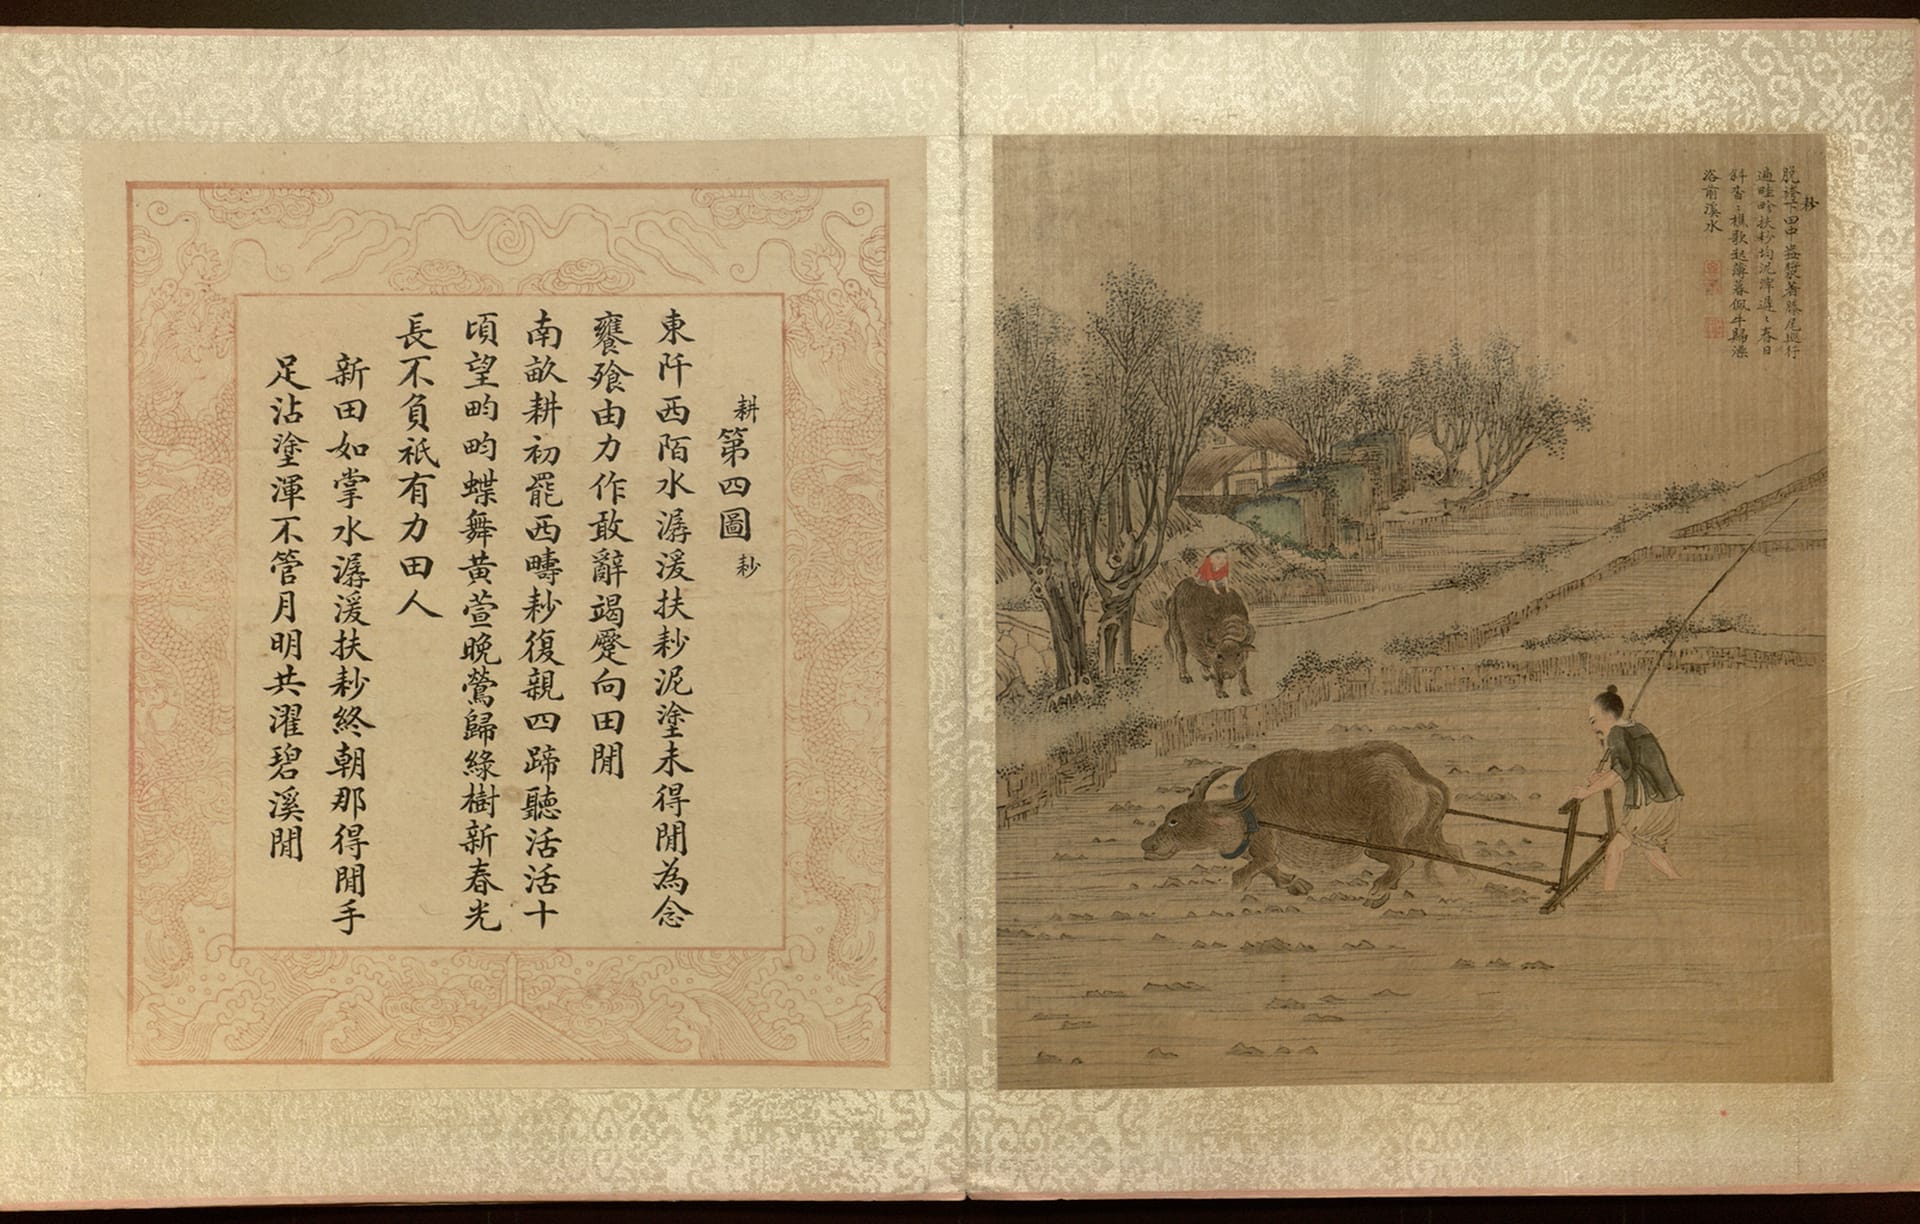 耖
脫袴下田中盎漿著塍尾巡行
遍畦畛扶耖均泥滓遲〻春日
斜杳〻樵歌起薄暮佩牛歸澡
浴前溪水
耕第四圖耖
東阡西陌水潺湲扶耖泥塗未得閒為念
饔飱由力作敢辭竭蹷向田閒
南畝耕初罷西疇耖復親四蹄聽活活十
頃望畇畇蝶舞黃萱晚鶯歸綠樹新春光
長不負祇有力田人
新田如掌水潺湲扶耖終朝那得閒手
足沾塗渾不管月明共濯碧溪閒